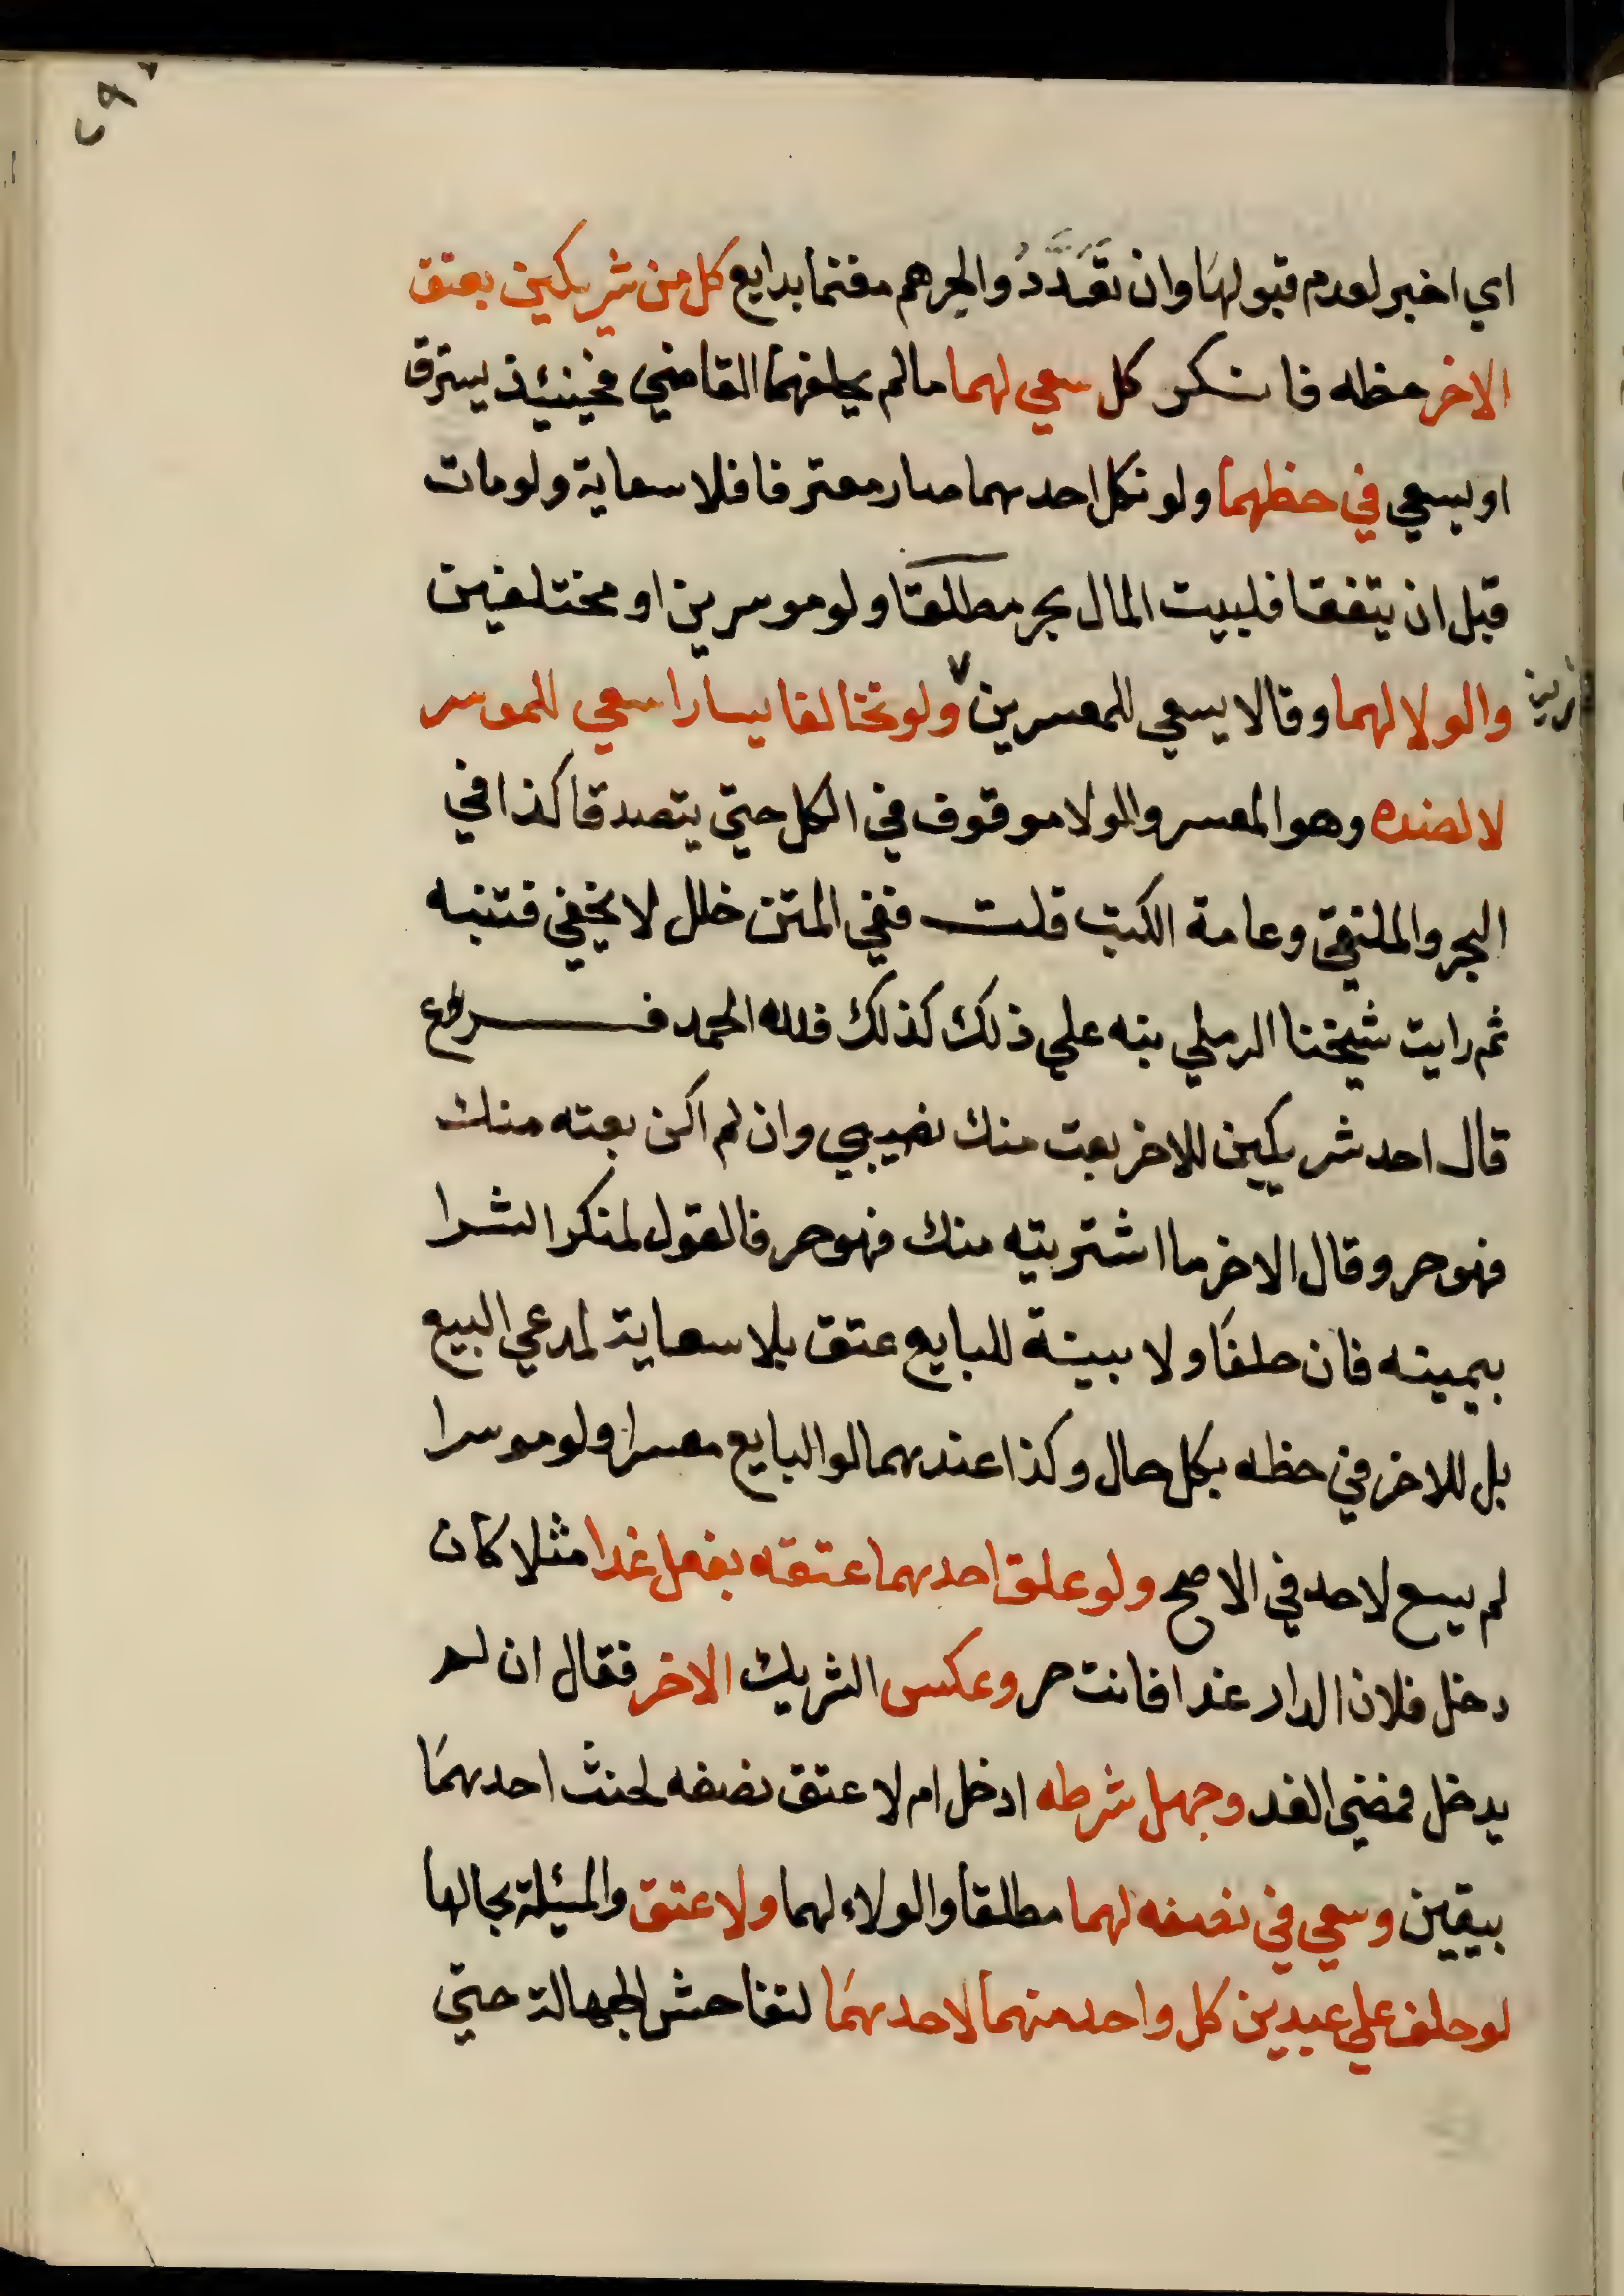 ٢٩٧
اي اخبر لعدم قبولها وان تعددوا لجرهم مغنما بدايع كل من شريكين بعتق
الاخر حظه فانكر كل سعي لهما ما لم يحلفهما القاضي فحينئذ يسترق
او يسعي في حظهما ولو نكل احدهما صار معترفا فلا سعاية ولو مات
قبل ان يتفقا فلبيت المال بحر مطلقا ولو موسرين او مختلفين
والولا لهما وقالا يسعي للمعسرين ولو تخالفا يسارا سعي للموسر
لا لضده وهو المعسر والولا موقوف في الكل حتي يتصدقا كذا في
البحر والملتقي وعامة الكتب قلت ففي المتن خلل لا يخفي فتنبه
ثم رايت شيخنا الرملي نبه علي ذلك كذلك فلله الحمد فروع
قال احد شريكين للاخر بعت منك نصيبي وان لم اكن بعته منك
فهو حر وقال الاخر ما اشتريته منك فهو حر فالقول لمنكر الشرا
بيمينه فان حلفا ولا بينة للبايع عتق بلا سعاية لمدعي البيع
بل للاخر في حظه بكل حال وكذا عندهما لو البايع معسرا ولو موسرا
لم يسع لاحد في الاصح ولو علق احدهما عتقه بفعل غدا مثلا كان
دخل فلان الدار غدا فانت حر وعكس الشريك الاخر فقال ان لم
يدخل فمضي الغد وجهل شرطه ادخل ام لا عتق نصفه لحنث احدهما
بيقين وسعي في نصفه لهما مطلقا والولاء لهما ولا عتق والمسئلة بحالها
لو حلف علي عبدين كل واحد منهما لاحدهما لتفاحش الجهالة حتي